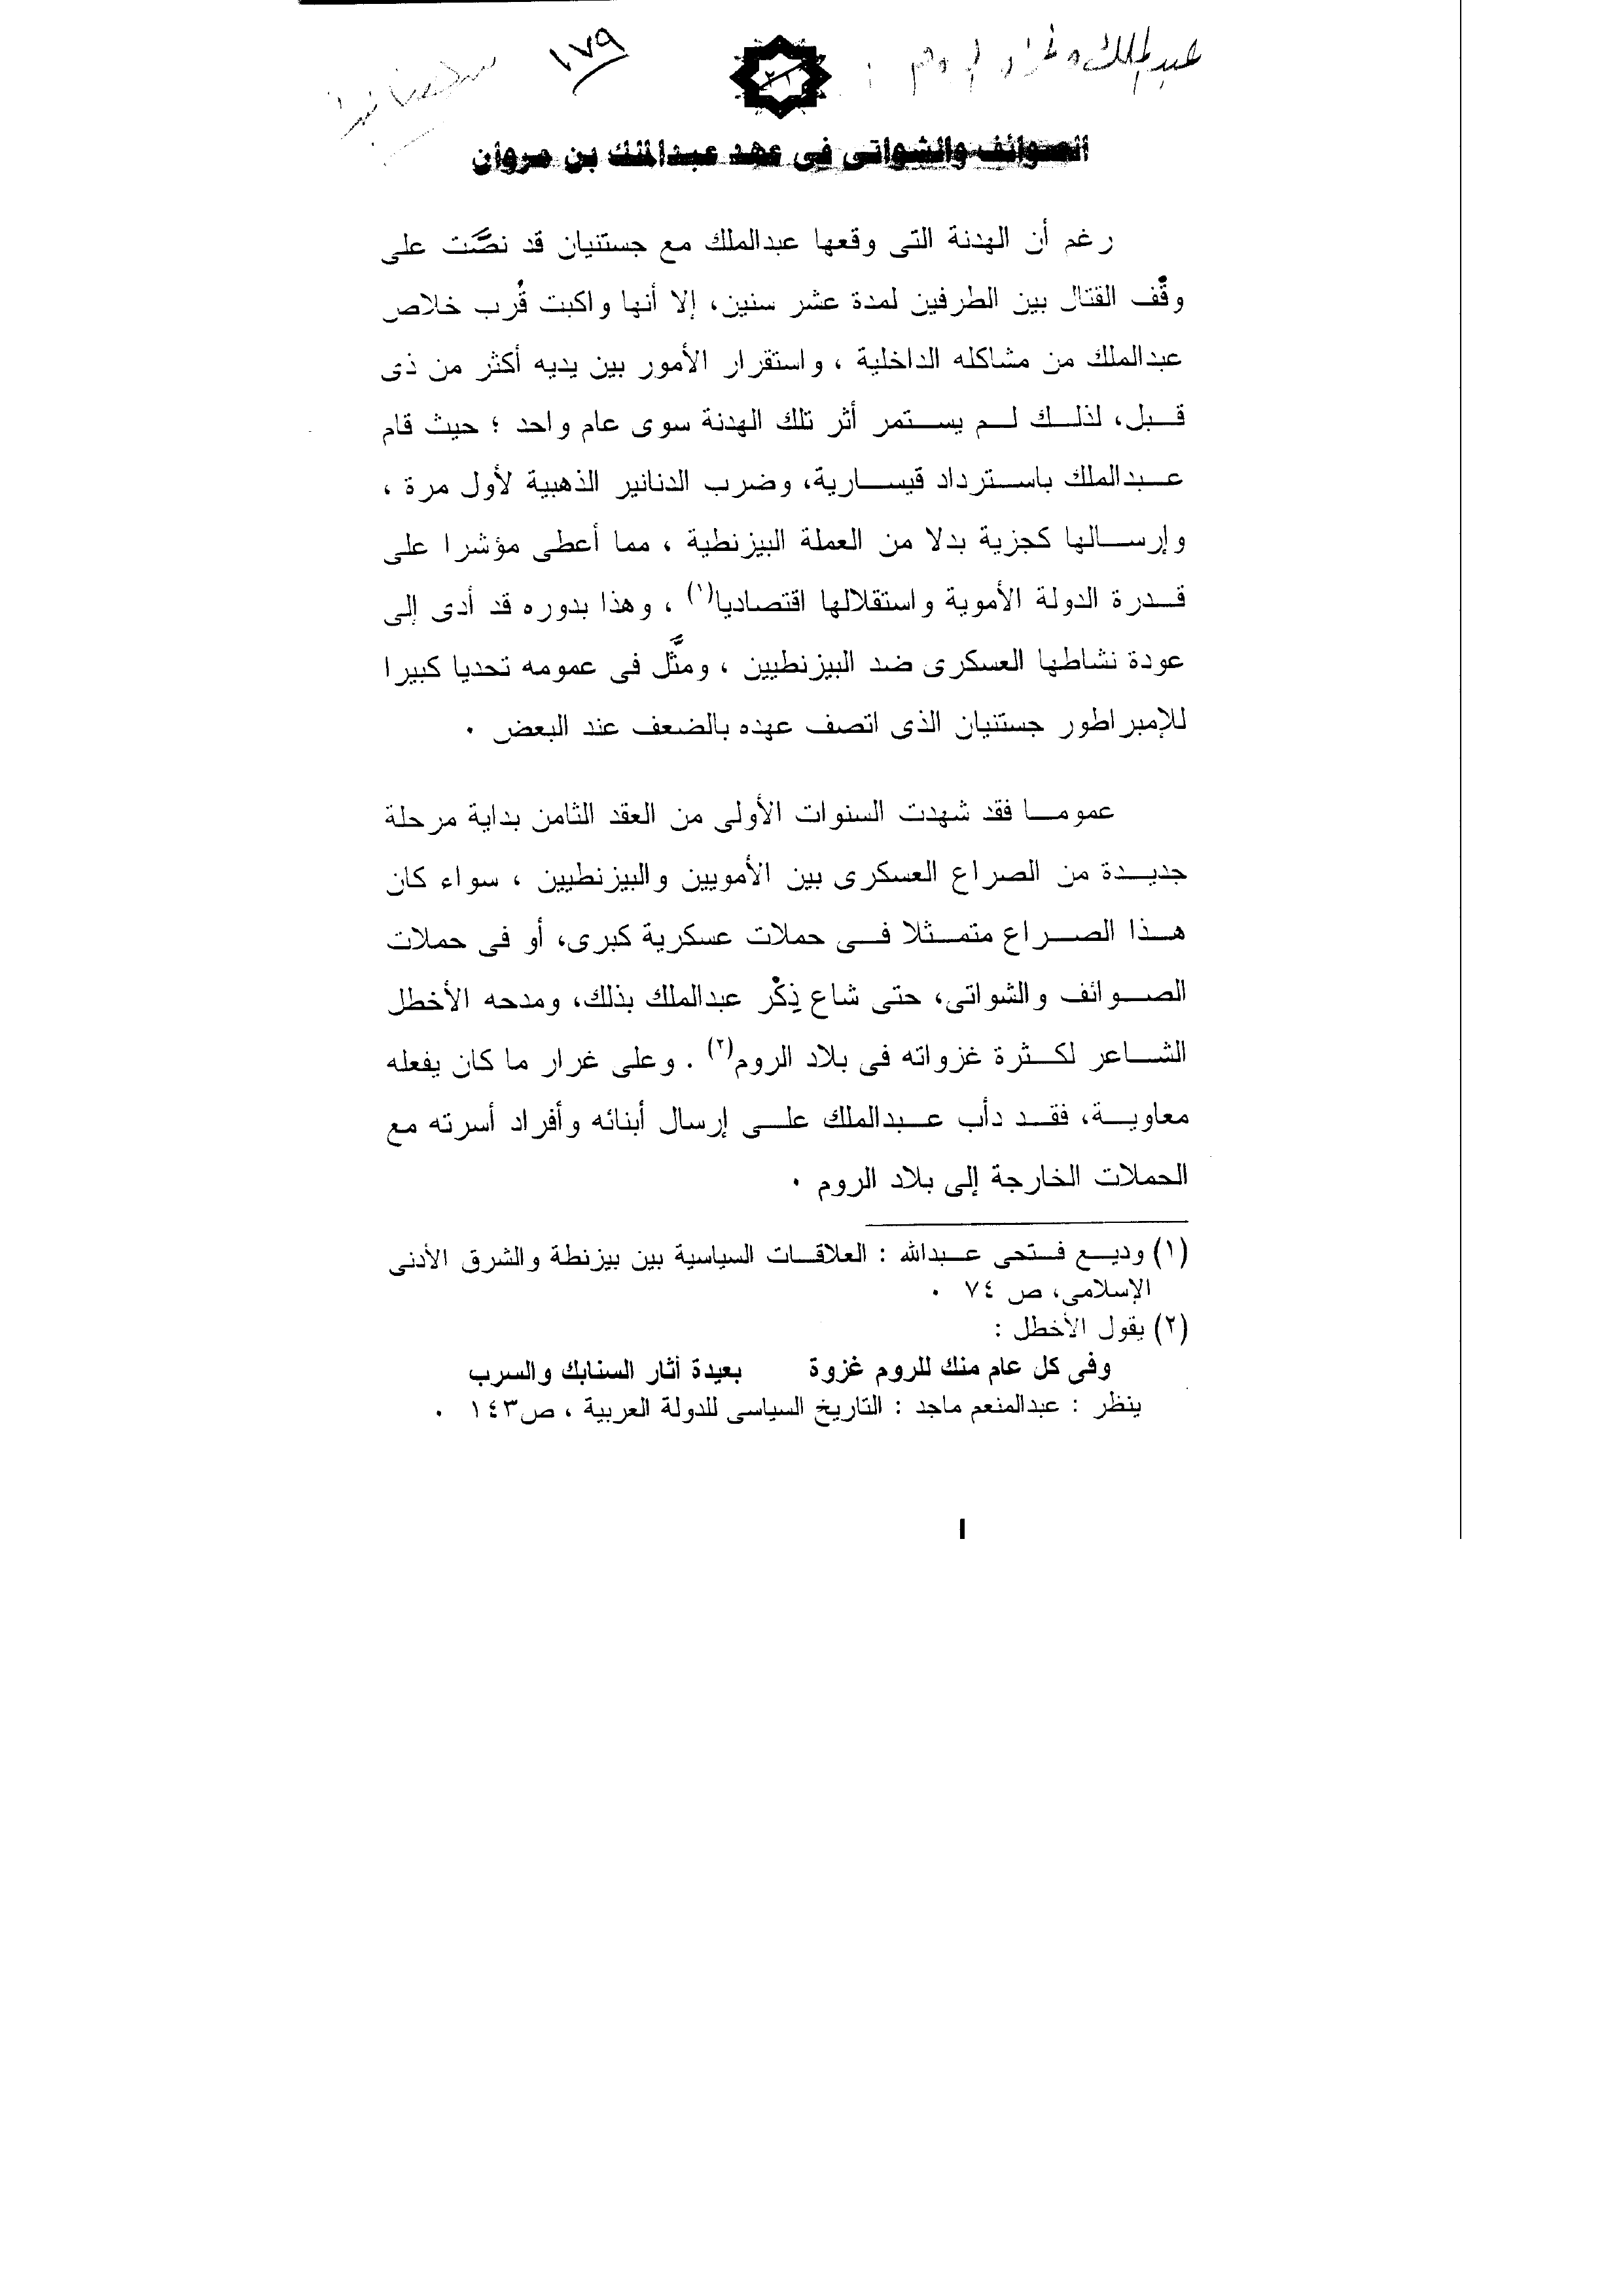 ١٧٩
الصوائف والشواتى فى عهد عبدالملك بن مروان
رغم أن الهدنة التى وقعها عبدالملك مع جستنيان قد نصَّت على
وقْف القتال بين الطرفين لمدة عشر سنين، إلا أنها واكبت قُرب خلاص
عبدالملك من مشاكله الداخلية ، واستقرار الأمور بين يديه أكثر من ذى
قبل، لذلك لم يستمر أثر تلك الهدنة سوى عام واحد ؛ حيث قام
عبدالملك باسترداد قيسارية، وضرب الدنانير الذهبية لأول مرة ،
وإرسالها كجزية بدلا من العملة البيزنطية ، مما أعطى مؤشرا على
قدرة الدولة الأموية واستقلالها اقتصاديا(١) ، وهذا بدوره قد أدى إلى
عودة نشاطها العسكرى ضد البيزنطيين ، ومثَّل فى عمومه تحديا كبيرا
للإمبراطور جستنيان الذى اتصف عهده بالضعف عند البعض ٠
عموما فقد شهدت السنوات الأولى من العقد الثامن بداية مرحلة
جديدة من الصراع العسكرى بين الأمويين والبيزنطيين ، سواء كان
هذا الصراع متمثلا فى حملات عسكرية كبرى، أو فى حملات
الصوائف والشواتى، حتى شاع ذِكْر عبدالملك بذلك، ومدحه الأخطل
الشاعر لكثرة غزواته فى بلاد الروم(٢) . وعلى غرار ما كان يفعله
معاوية، فقد دأب عبدالملك على إرسال أبنائه وأفراد أسرته مع
الحملات الخارجة إلى بلاد الروم ٠
(١) وديع فتحى عبدالله : العلاقات السياسية بين بيزنطة والشرق الأدنى
الإسلامى، ص ٧٤ ٠
(٢) يقول الأخطل :
وفى كل عام منك للروم غزوة بعيدة أثار السنابك والسرب
ينظر : عبدالمنعم ماجد : التاريخ السياسى للدولة العربية ، ص١٤٣ ٠